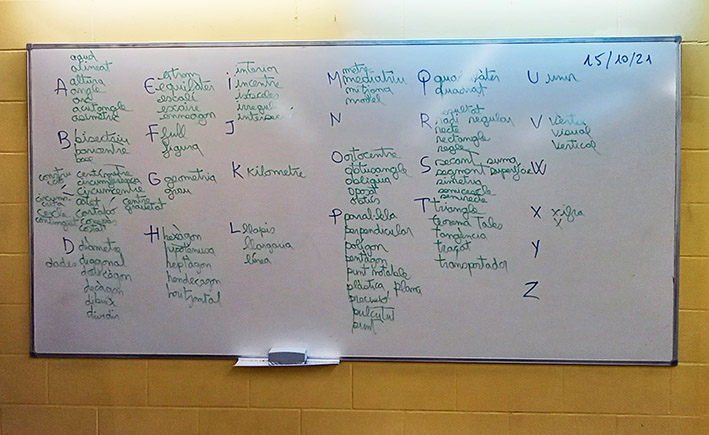 15/10/21
A
agud
alineat
altura
angle
acutangle
asimetria
B
bisectriu
baricentre
base
centímetre
circumferència
circumcentre
catet
cartabó
D
dades
diàmetre
diagonal
dodecàgon
decàgon
dibuix
dividir
E
equilàter
escalè
escaire
F
full
figura
G
geometria
grau
H
hexàgon
hipotenusa
heptàgon
hendecàgon
horitzontal
I
interior
incentre
isòsceles
irregular
J
K kilòmetre
L
llapis
llargària
línea
M
mediatriu
mitjana
model
N
O
ortocentre
obtusangle
obliqua
oposat
P
paral·lela
perpendicular
polígon
pentàgon
punt notable
plàstica plana
punt
Q
quadrat
R
radi regular
recte
rectangle
regle
S
secant suma
segment superfície
simetria
semirecta
T
triangle
teorema Tales
tangència
traçat
transportador
U unir
V
vèrtex
visual
vertical
W
X xifra
x
Y
Z